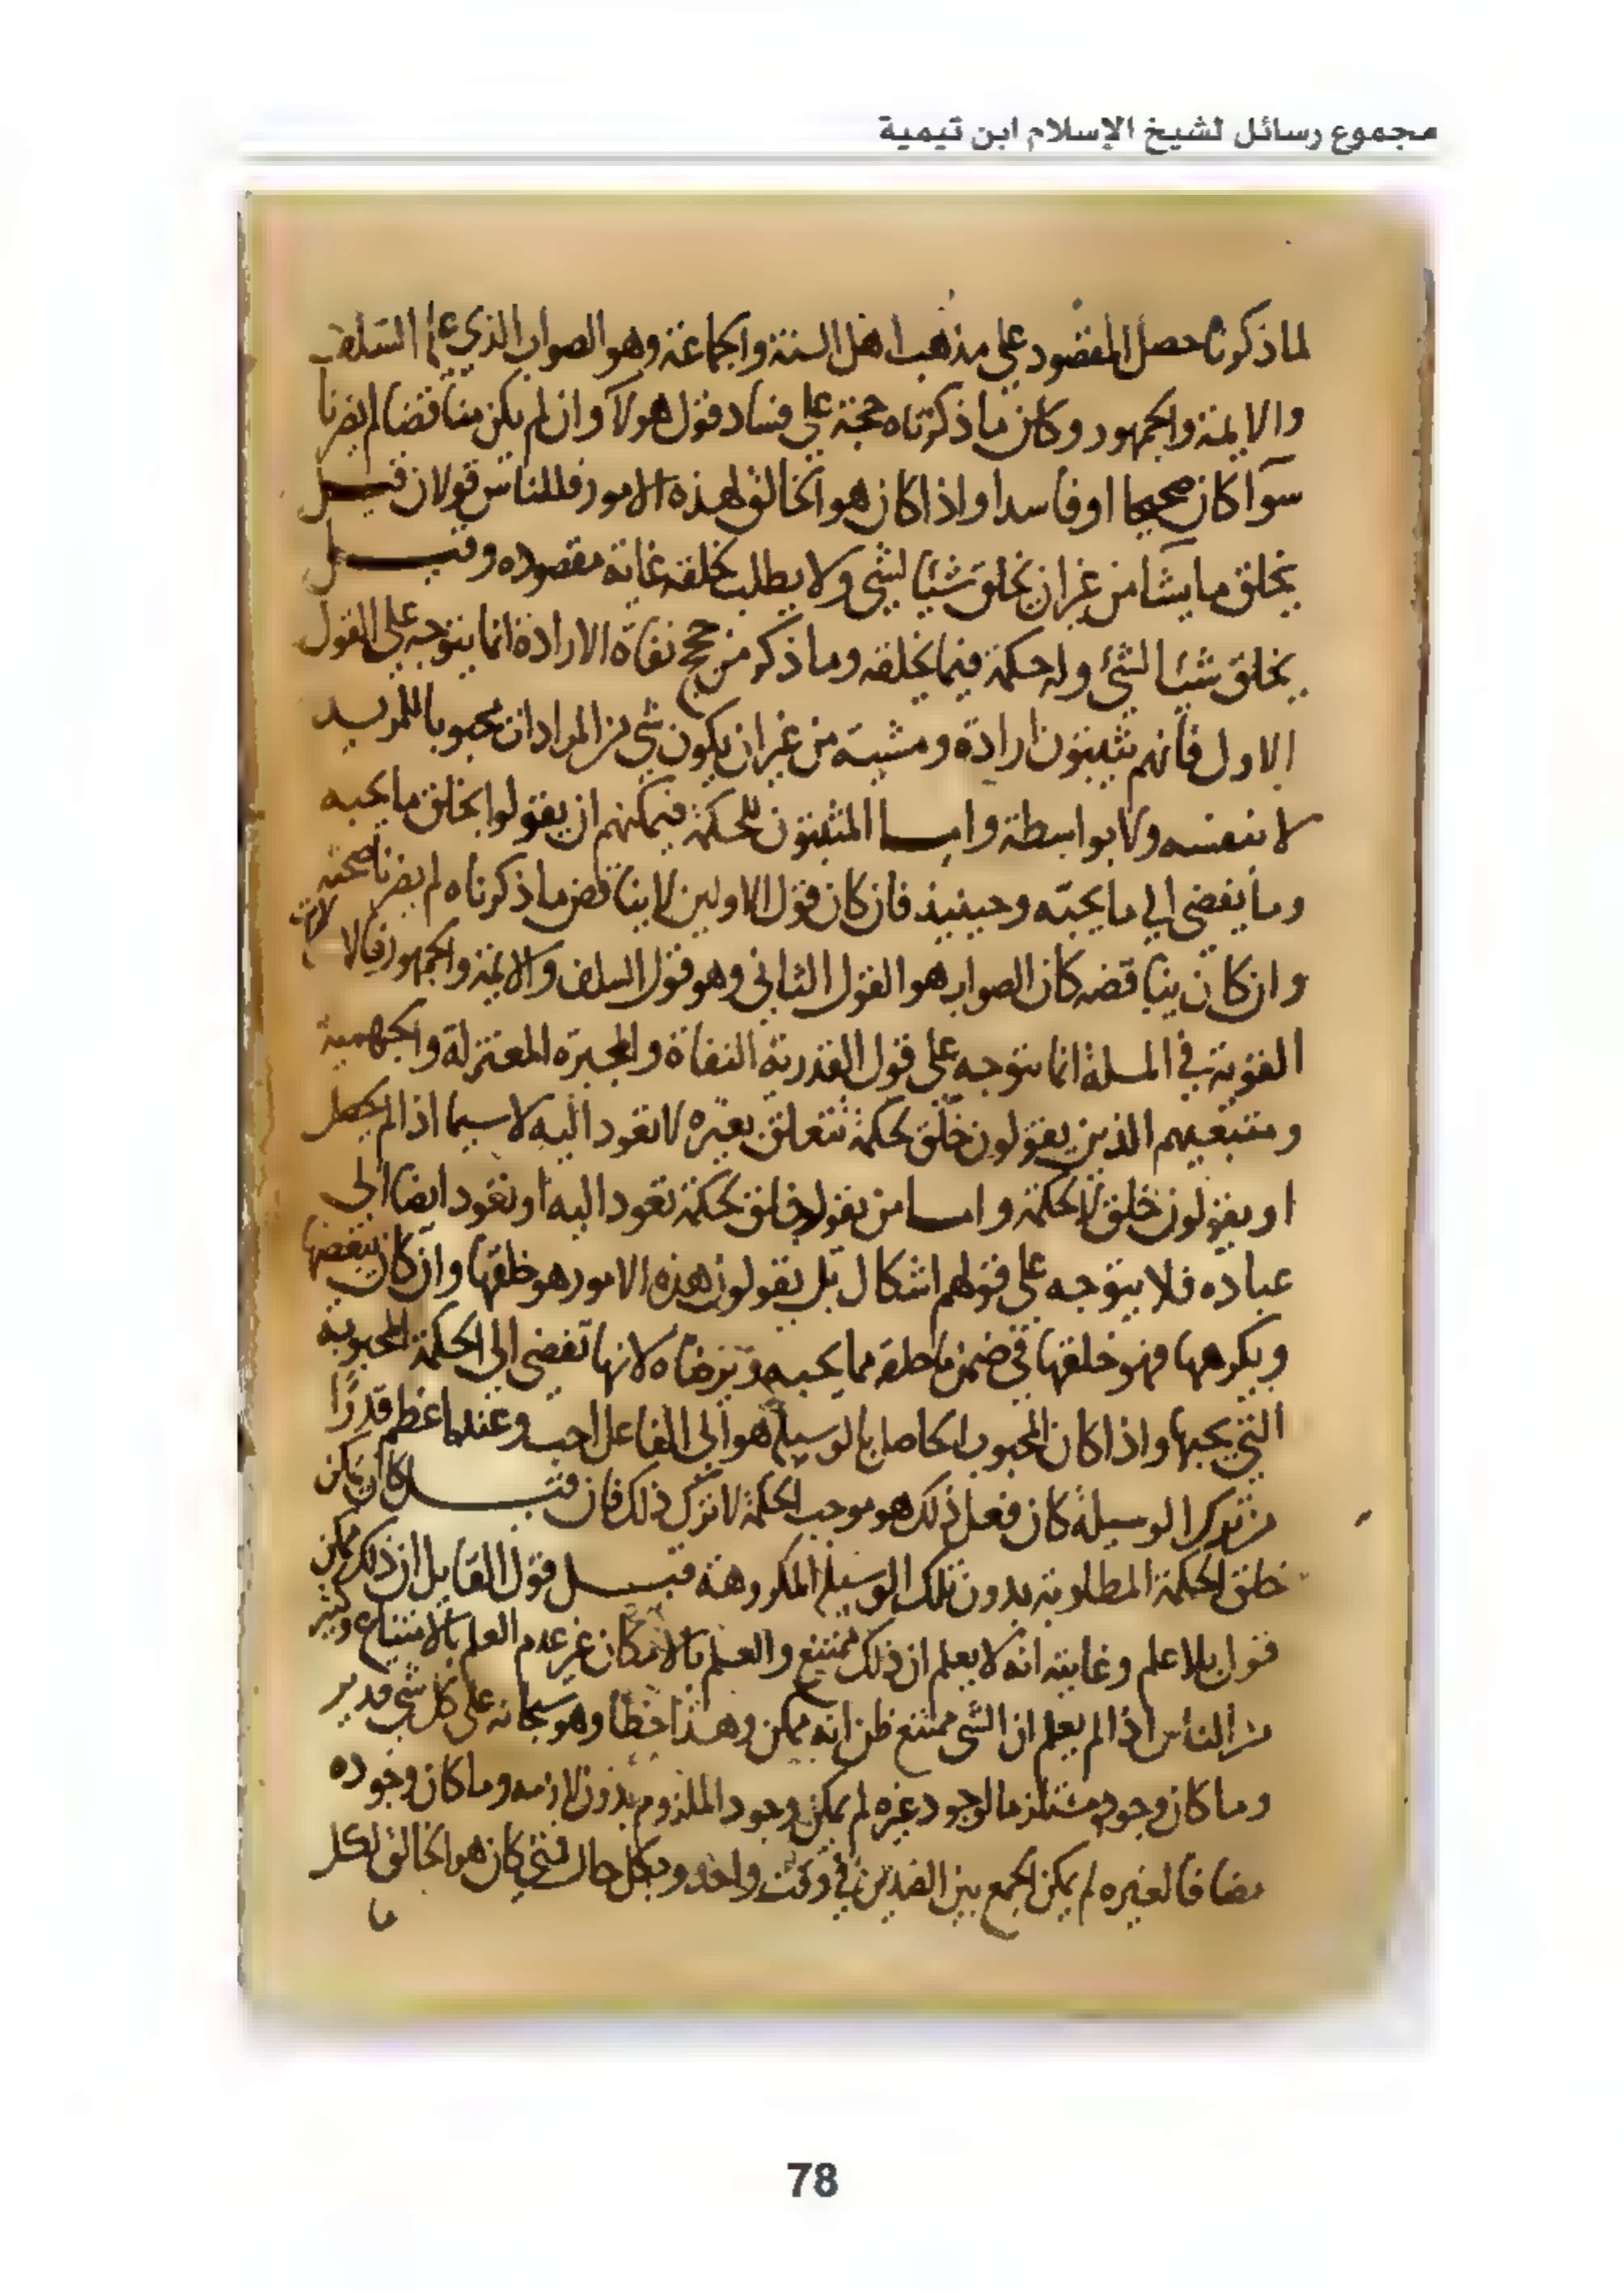 مجموع رسائل لشيخ الإسلام ابن تيمية
لما ذكرناه حصل المقصود على مذهب اهل السنة والجماعة وهو الصواب الذي عليه السلف
والايمة والجمهور وكان ما ذكرناه حجة على فساد قول هولآ وان لم يكن مناقضا لم يضرنا
سوآ كان صحيحا او فاسدا واذا كان هو الخالق لهذه الامور فللناس قولان قيل
يخلق ما يشا من غير ان يخلق شيئا لشي ولا يطلب بخلقه غاية مقصوده وقيل
يخلق شيئا لشئ وله حكمة فيما يخلقه وما ذكر من حجج نفاة الارادة انما يتوجه على القول
الاول فانهم يثبتون ارادة ومشية من غير ان يكون شي من المرادات محبوبا للمريد
لا بنفسه ولا بواسطة واما المثبتون للحكمة فيمكنهم ان يقولوا يخلق ما يحبه
وما يفضي الى ما يحبه وحينيذ فان كان قول الاولين لا يناقض ما ذكرناه لم يضرنا صحته
وان كان يناقضه كان الصواب هو القول الثاني وهو قول السلف والايمة والجمهور
القوية في المسلة انما يتوجه على قول القدرية النفاة والمجبرة المعتزلة والجهمية
ومتبعيهم الذين يقولون خلق لحكمة تتعلق بغيره لا تعود اليه لا سيما اذا لم يحصل
او يقولون خلق لا لحكمة واما من يقول خلق لحكمة تعود اليه او تعود ايضا الى
عباده فلا يتوجه على قولهم اشكال بل يقولون هذه الامور هو خلقها وان كان يبغضها
ويكرهها فهو خلقها في ضمن ما خلقه مما يحبه ويرضاه لانها تفضي الى الحكمة المحبوبة
التي يحبها واذا كان المحبوب الحاصل بالوسيلة هو الى الفاعل احب وعنده اعظم قدرًا
من ترك الوسيلة كان فعل ذلك هو موجب الحكمة لا ترك ذلك فان قيل كان يمكن
خلق الحكمة المطلوبة بدون تلك الوسيلة المكروهة قيل قول القايل ان ذلك ممكن
قول بلا علم وغايته انه لا يعلم ان ذلك ممتنع والعلم بالامكان غير عدم العلم بالامتناع وكثير
من الناس اذا لم يعلم ان الشي ممتنع ظن انه ممكن وهذا خطأ وهو سبحانه على كل شي قدير
وما كان وجوده مستلزما لوجود غيره لم يمكن وجود الملزوم بدون لازمه وما كان وجوده
مضافا لغيره لم يمكن الجمع بين الضدين في وقت واحد وبكل حال كان هو الخالق لكل
ما
78